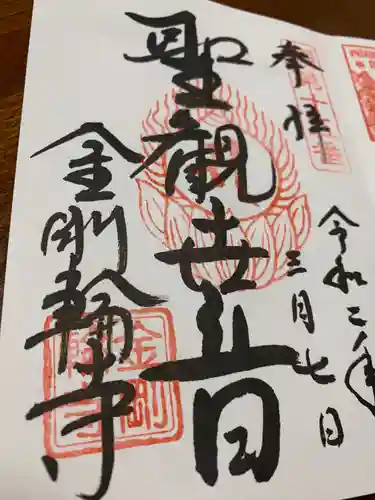 奉拝
令和二年
三月七日
聖観世音
金剛輪寺
金剛輪寺